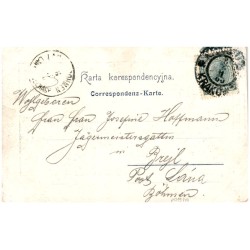 Karta korespondencyjna.
Correspondenz-Karte.
Wohlgeboren
Frau Frau Josefine Hoffmann
Jägermeistersgattin
in
Brejl
Post Lána
Böhmen
KRAKÓW